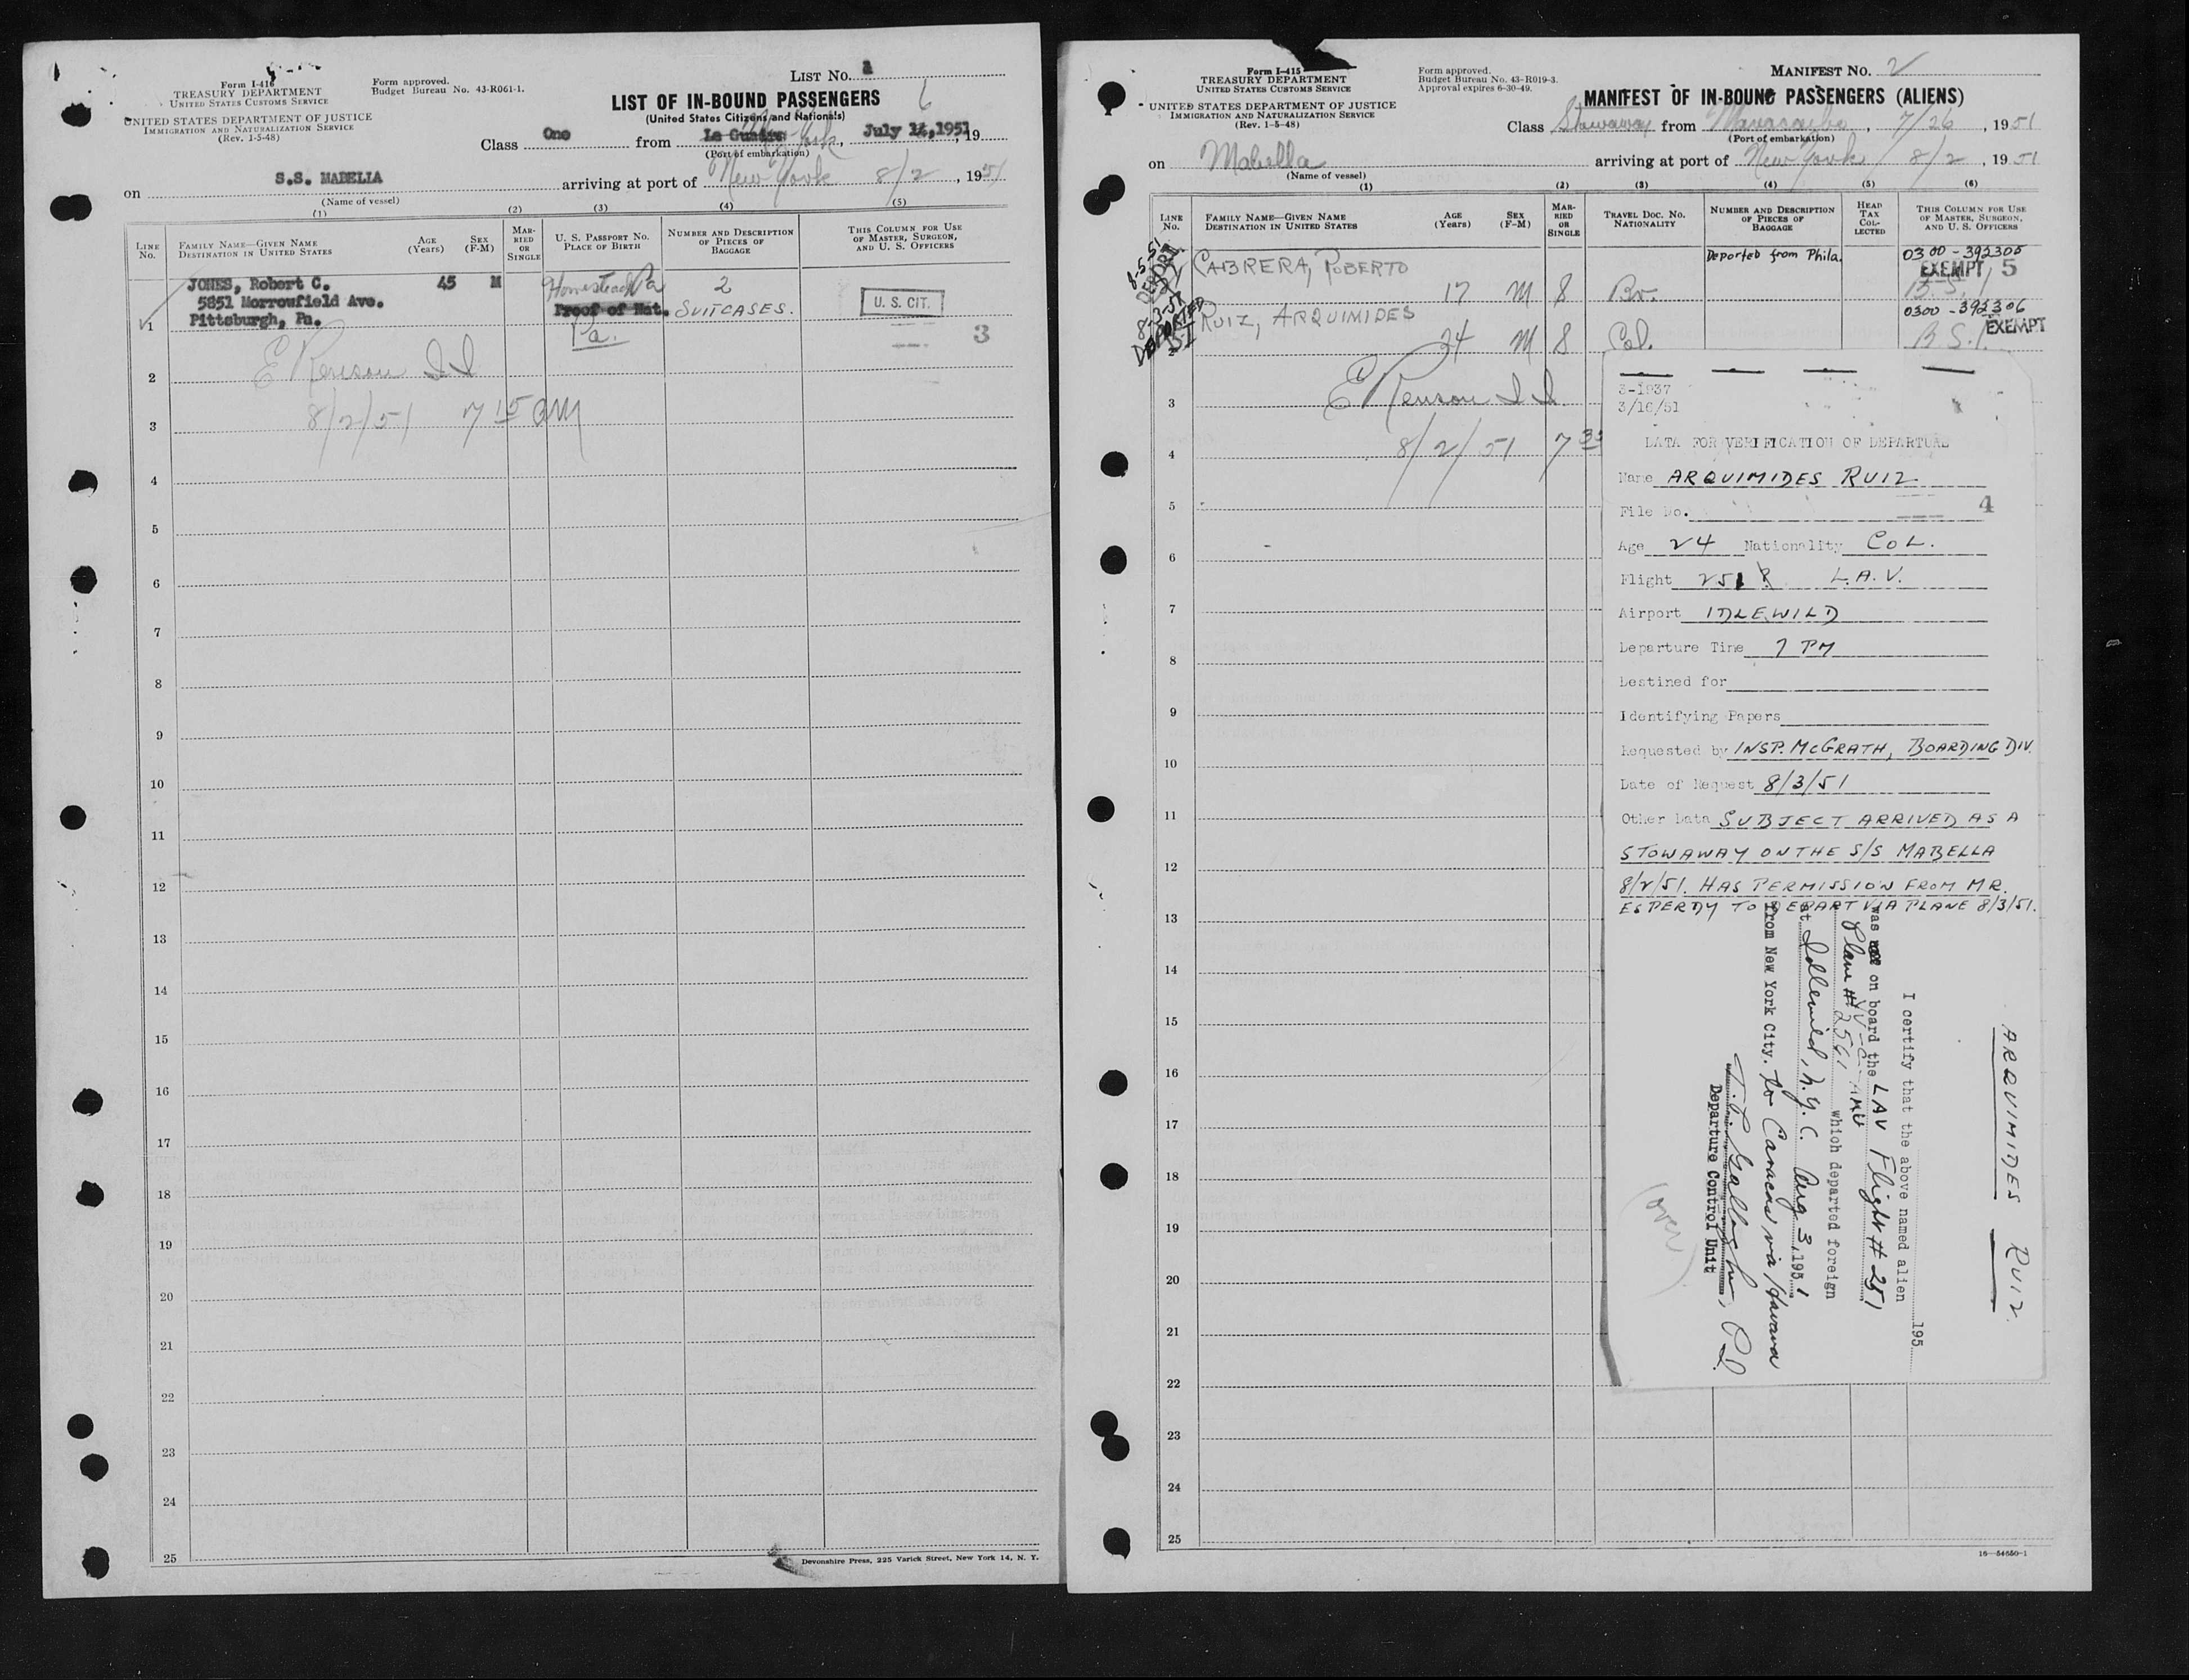 LIST No. 2
Form I-416
TREASURY DEPARTMENT
UNITED STATES CUSTOMS SERVICE
UNITED STATES DEPARTMENT OF JUSTICE
IMMIGRATION AND NATURALIZATION SERVICE
(Rev. 1-5-48)
Form approved.
Budget Bureau No. 43-R061-1.
LIST OF IN-BOUND PASSENGERS 6
(United States Citizens and Nationals)
Class One from York, July 14, 1951, 19
(Port of embarkation)
on S.S. MABELIA arriving at port of New York 8/2, 1951
(Name of vessel)
(1) (2) (3) (4) (5)
LINE No.
FAMILY NAME—GIVEN NAME
DESTINATION IN UNITED STATES
AGE (Years)
SEX (F-M)
MARRIED OR SINGLE
U. S. PASSPORT NO.
PLACE OF BIRTH
NUMBER AND DESCRIPTION OF PIECES OF BAGGAGE
THIS COLUMN FOR USE OF MASTER, SURGEON, AND U. S. OFFICERS
JONES, Robert C. 45 M Homestead Pa 2
5851 Morrowfield Ave. Proof of Nat. SUITCASES. U. S. CIT.
1 Pittsburgh, Pa. Pa. 3
2 E Renison I I
3 8/2/51 7 15 AM
4
5
6
7
8
9
10
11
12
13
14
15
16
17
18
19
20
21
22
23
24
25
Devonshire Press, 225 Varick Street, New York 14, N. Y.
Form I-415
TREASURY DEPARTMENT
UNITED STATES CUSTOMS SERVICE
UNITED STATES DEPARTMENT OF JUSTICE
IMMIGRATION AND NATURALIZATION SERVICE
(Rev. 1-5-48)
Form approved.
Budget Bureau No. 43-R019-3.
Approval expires 6-30-49.
MANIFEST No. 2
MANIFEST OF IN-BOUND PASSENGERS (ALIENS)
Class Stowaway from Maracaibo, 7/26, 1951
(Port of embarkation)
on Mabella arriving at port of New York, 8/2, 1951
(Name of vessel)
(1) (2) (3) (4) (5) (6)
LINE No.
FAMILY NAME—GIVEN NAME
DESTINATION IN UNITED STATES
AGE (Years)
SEX (F-M)
MARRIED OR SINGLE
TRAVEL DOC. NO.
NATIONALITY
NUMBER AND DESCRIPTION OF PIECES OF BAGGAGE
HEAD TAX COLLECTED
THIS COLUMN FOR USE OF MASTER, SURGEON, AND U. S. OFFICERS
8-5-51
CABRERA, ROBERTO Deported from Phila. 0300-392305
EXEMPT 5
17 M S Br. B.S.I
8-3-51
DEPORTED
RUIZ, ARQUIMIDES 0300-392306
EXEMPT
2 24 M S Col. B.S.I.
3 E Renison I I
4 8/2/51 7 35
5
6
7
8
9
10
11
12
13
14
15
16
17
18
19
20
21
22
23
24
25
16—54650-1
3-1937
3/16/51
DATA FOR VERIFICATION OF DEPARTURE
Name ARQUIMIDES RUIZ
File No. 4
Age 24 Nationality COL.
Flight 251 L.A.V.
Airport IDLEWILD
Departure Time 7 PM
Destined for
Identifying Papers
Requested by INSP. MCGRATH, BOARDING DIV.
Date of Request 8/3/51
Other Data SUBJECT ARRIVED AS A
STOWAWAY ON THE S/S MABELLA
8/2/51. HAS PERMISSION FROM MR.
ESPERDY TO DEPART VIA PLANE 8/3/51.
ARQUIMIDES RUIZ
195
I certify that the above named alien
was on board the LAV Flight # 251
Plane # 2561 which departed foreign
at Idlewild, N.Y.C. Aug 3, 1951
from New York City. to Caracas via Havana
T. P. Gallagher, P.I.
Departure Control Unit
(over)